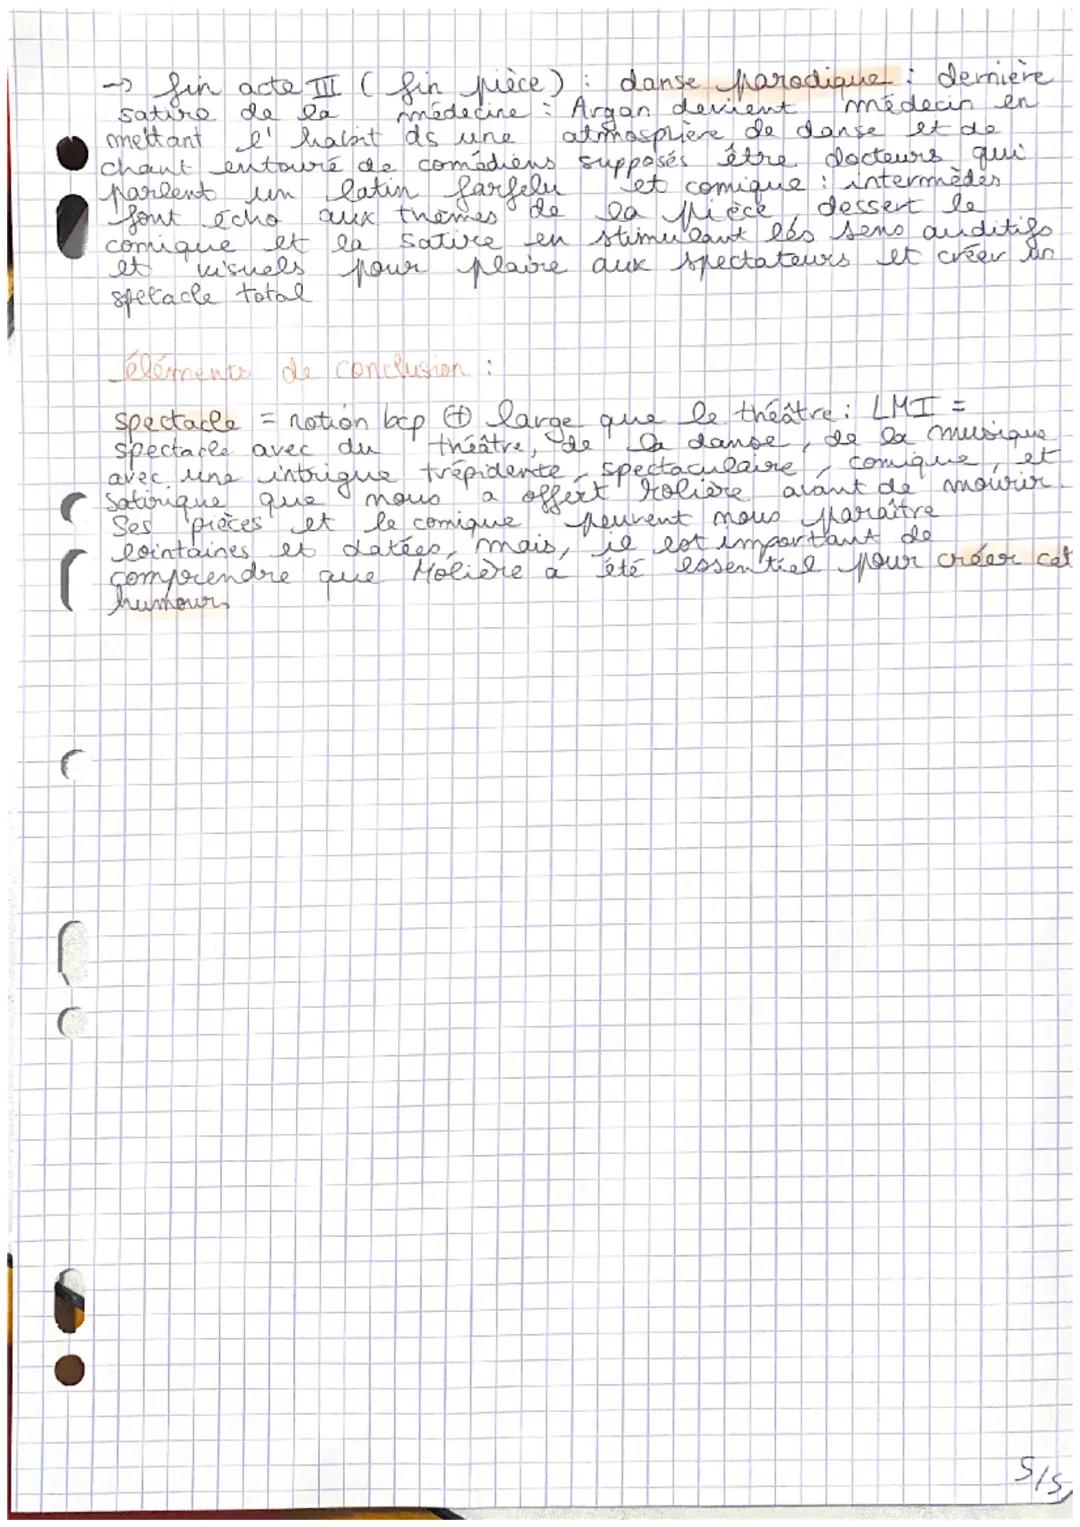 -> fin acte III ( fin pièce ) : danse parodique : dernière
satire de la médecine : Argan devient médecin en
mettant l'habit ds une atmosphère de danse et de
chant entouré de comédiens supposés être docteurs qui
parlent un latin farfelu et comique : intermèdes
font écho aux thèmes de la pièce, dessert le
comique et la satire en stimulant les sens auditifs
et visuels pour plaire aux spectateurs et créer un
spectacle total
éléments de conclusion :
spectacle = notion bcp ⊕ large que le théâtre : LMI =
spectacle avec du théâtre, de la danse, de la musique
avec une intrigue trépidente, spectaculaire, comique, et
satirique que nous a offert Molière avant de mourir.
Ses pièces et le comique peuvent nous paraître
lointaines et datées, mais, il est important de
comprendre que Molière a été essentiel pour créer cet
humours
5/5